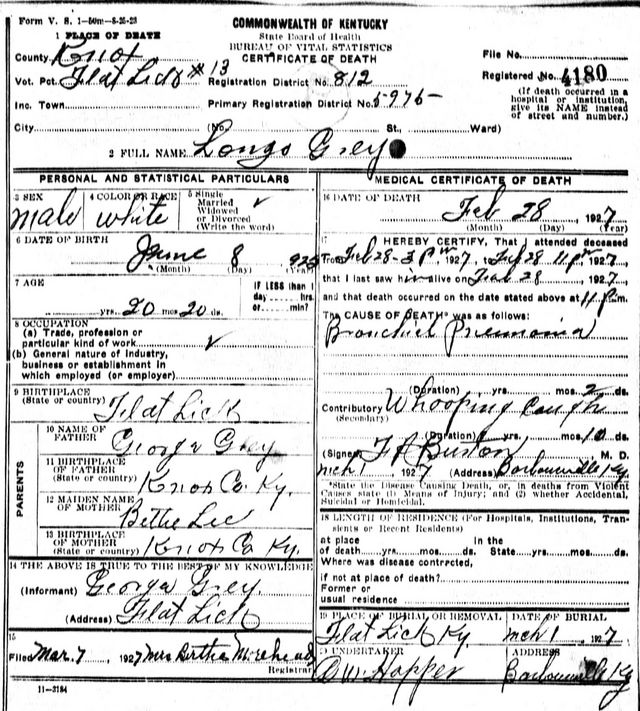 Form V. S. 1-50m-8-26-23
COMMONWEALTH OF KENTUCKY
State Board of Health
BUREAU OF VITAL STATISTICS
CERTIFICATE OF DEATH
1 PLACE OF DEATH
County Knox
Vot. Pct. Flat Lick #13
Inc. Town
City
Registration District No. 812
Primary Registration District No. 5975-
(No. St., Ward)
File No.
Registered No. 4180
(If death occurred in a hospital or institution, give its NAME instead of street and number.)
2 FULL NAME Longo Grey
PERSONAL AND STATISTICAL PARTICULARS
3 SEX
male
4 COLOR OR RACE
white
5 Single
Married
Widowed
or Divorced
(Write the word)
6 DATE OF BIRTH
June 8 1925
(Month) (Day) (Year)
7 AGE
yrs. 20 mos 20 ds.
IF LESS than 1
day hrs.
or min?
8 OCCUPATION
(a) Trade, profession or
particular kind of work
(b) General nature of industry,
business or establishment in
which employed (or employer)
9 BIRTHPLACE
(State or country) Flat Lick
PARENTS
10 NAME OF
FATHER George Grey
11 BIRTHPLACE
OF FATHER
(State or country) Knox Co. Ky.
12 MAIDEN NAME
OF MOTHER Bettie Lee
13 BIRTHPLACE
OF MOTHER
(State or country) Knox Co Ky.
14 THE ABOVE IS TRUE TO THE BEST OF MY KNOWLEDGE
(Informant) George Grey
(Address) Flat Lick
15
Filed Mar. 7, 1927 Mrs Bertha Morehead
Registrar
11-3184
MEDICAL CERTIFICATE OF DEATH
16 DATE OF DEATH
Feb 28, 1927
(Month) (Day) (Year)
17 I HEREBY CERTIFY, That I attended deceased
from Feb 28-3 P.M. 1927, to Feb 28 11 P.M. 1927
that I last saw him alive on Feb 28, 1927
and that death occurred on the date stated above at 11 P.m.
The CAUSE OF DEATH* was as follows:
Bronchiel Pneumonia
(Duration) yrs. mos. 2 ds.
Contributory Whooping Cough
(Secondary)
(Duration) yrs. mos. 10 ds.
(Signed) F R Burton M. D.
mch 1, 1927 (Address) Barbourville Ky.
*State the Disease Causing Death, or, in deaths from Violent
Causes state (1) Means of Injury; and (2) whether Accidental,
Suicidal or Homicidal.
18 LENGTH OF RESIDENCE (For Hospitals, Institutions, Transients or Recent Residents)
at place In the
of death yrs. mos. ds. State yrs. mos. ds.
Where was disease contrrcted,
if not at place of death?
Former or
usual residence
19 PLACE OF BURIAL OR REMOVAL
Flat Lick Ky.
DATE OF BURIAL
mch 1 1927
20 UNDERTAKER
Hopper
ADDRESS
Barbourville Ky